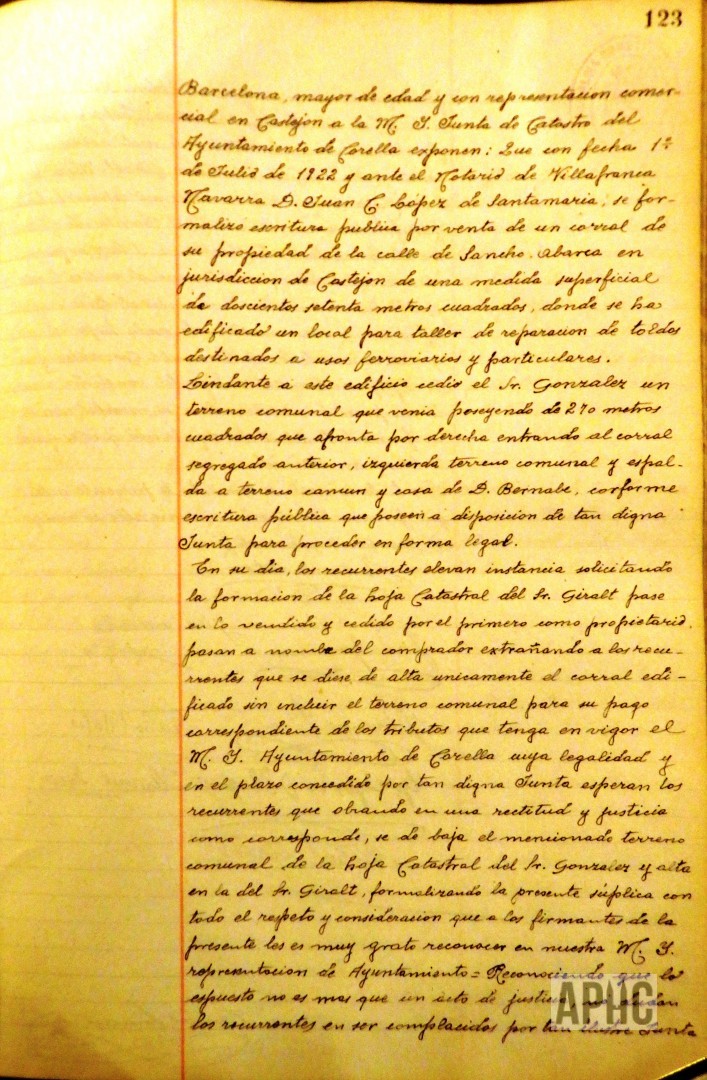 123
Barcelona, mayor de edad y con representacion comer-
cial en Castejon a la M. I. Junta de Catastro del
Ayuntamiento de Corella exponen: Que con fecha 1º
de Julio de 1922 y ante el Notario de Villafranca
Navarra D. Juan C. López de Santamaria, se for-
malizo escritura publica por venta de un corral de
su propiedad de la calle de Sancho Abarca en
jurisdiccion de Castejon de una medida superficial
de doscientos setenta metros cuadrados, donde se ha
edificado un local para taller de reparacion de toldos
destinados a usos ferroviarios y particulares.
Lindante a este edificio cedio el Sr. Gonzalez un
terreno comunal que venia poseyendo de 270 metros
cuadrados que afronta por derecha entrando al corral
segregado anterior, izquierda terreno comunal y espal-
da a terreno comun y casa de D. Bernabe, conforme
escritura pública que poseen a disposicion de tan digna
Junta para proceder en forma legal.
En su dia, los recurrentes elevan instancia solicitando
la formacion de la hoja Catastral del Sr. Giralt pase
en lo vendido y cedido por el primero como propietario,
pasan a nombre del comprador extrañando a los recu-
rrentes que se diese de alta unicamente el corral edi-
ficado sin incluir el terreno comunal para su pago
correspondiente de los tributos que tenga en vigor el
M. I. Ayuntamiento de Corella cuya legalidad y
en el plazo concedido por tan digna Junta esperan los
recurrentes que obrando en una rectitud y justicia
como corresponde, se de baja el mencionado terreno
comunal de la hoja Catastral del Sr. Gonzalez y alta
en la del Sr. Giralt, formalizando la presente súplica con
todo el respeto y consideracion que a los firmantes de la
presente les es muy grato reconocer en nuestra M. I.
representacion de Ayuntamiento = Reconociendo que lo
espuesto no es mas que un acto de justicia, no dudan
los recurrentes en ser complacidos por tan ilustre Junta
APHC